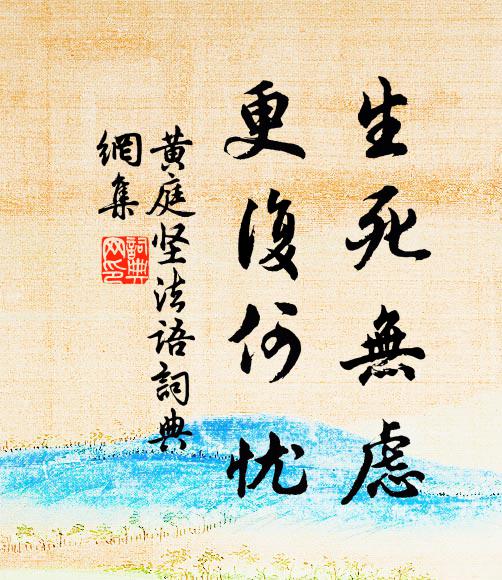 生死無慮
更復何忧
黄庭坚法语詞典
網集
詞典
网印